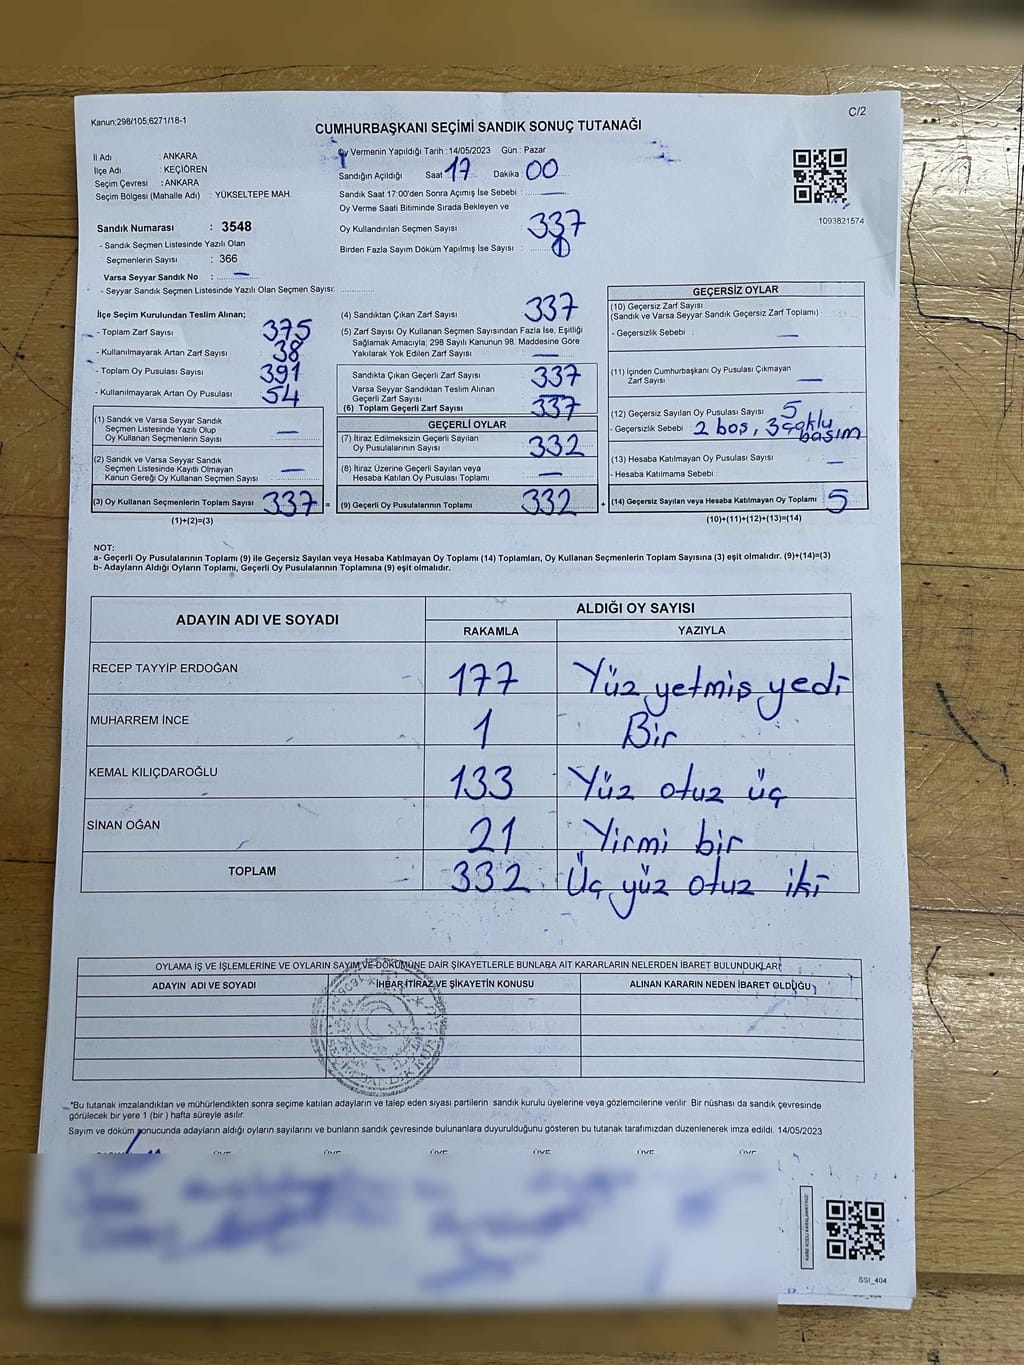 Kanun;298/105;6271/18-1
C/2
CUMHURBAŞKANI SEÇİMİ SANDIK SONUÇ TUTANAĞI
İl Adı : ANKARA
İlçe Adı : KEÇİÖREN
Seçim Çevresi : ANKARA
Seçim Bölgesi (Mahalle Adı) : YÜKSELTEPE MAH.
Oy Vermenin Yapıldığı Tarih :14/05/2023 Gün : Pazar
Sandığın Açıldığı Saat 17 Dakika : 00
Sandık Saat 17:00'den Sonra Açımış İse Sebebi : —
Oy Verme Saati Bitiminde Sırada Bekleyen ve
Oy Kullandırılan Seçmen Sayısı : 337
Birden Fazla Sayım Döküm Yapılmış İse Sayısı :
1093821574
Sandık Numarası : 3548
- Sandık Seçmen Listesinde Yazılı Olan
Seçmenlerin Sayısı : 366
Varsa Seyyar Sandık No : —
- Seyyar Sandık Seçmen Listesinde Yazılı Olan Seçmen Sayısı:
İlçe Seçim Kurulundan Teslim Alınan;
- Toplam Zarf Sayısı 375
- Kullanılmayarak Artan Zarf Sayısı 38
- Toplam Oy Pusulası Sayısı 391
- Kullanılmayarak Artan Oy Pusulası 54
(1) Sandık ve Varsa Seyyar Sandık
Seçmen Listesinde Yazılı Olup
Oy Kullanan Seçmenlerin Sayısı —
(2) Sandık ve Varsa Seyyar Sandık
Seçmen Listesinde Kayıtlı Olmayan
Kanun Gereği Oy Kullanan Seçmen Sayısı —
(3) Oy Kullanan Seçmenlerin Toplam Sayısı 337 =
(1)+(2)=(3)
(4) Sandıktan Çıkan Zarf Sayısı 337
(5) Zarf Sayısı Oy Kullanan Seçmen Sayısından Fazla İse, Eşitliği
Sağlamak Amacıyla; 298 Sayılı Kanunun 98. Maddesine Göre
Yakılarak Yok Edilen Zarf Sayısı —
Sandıkta Çıkan Geçerli Zarf Sayısı 337
Varsa Seyyar Sandıktan Teslim Alınan
Geçerli Zarf Sayısı —
(6) Toplam Geçerli Zarf Sayısı 337
GEÇERLİ OYLAR
(7) İtiraz Edilmeksizin Geçerli Sayılan
Oy Pusulalarının Sayısı 332
(8) İtiraz Üzerine Geçerli Sayılan veya
Hesaba Katılan Oy Pusulası Toplamı —
(9) Geçerli Oy Pusulalarının Toplamı 332 +
GEÇERSİZ OYLAR
(10) Geçersiz Zarf Sayısı
(Sandık ve Varsa Seyyar Sandık Geçersiz Zarf Toplamı) :
- Geçersizlik Sebebi : —
(11) İçinden Cumhurbaşkanı Oy Pusulası Çıkmayan
Zarf Sayısı —
(12) Geçersiz Sayılan Oy Pusulası Sayısı : 5
- Geçersizlik Sebebi : 2 boş, 3 çoklu
basım
(13) Hesaba Katılmayan Oy Pusulası Sayısı : —
- Hesaba Katılmama Sebebi :
(14) Geçersiz Sayılan veya Hesaba Katılmayan Oy Toplamı : 5
(10)+(11)+(12)+(13)=(14)
NOT:
a- Geçerli Oy Pusulalarının Toplamı (9) ile Geçersiz Sayılan veya Hesaba Katılmayan Oy Toplamı (14) Toplamları, Oy Kullanan Seçmenlerin Toplam Sayısına (3) eşit olmalıdır. (9)+(14)=(3)
b- Adayların Aldığı Oyların Toplamı, Geçerli Oy Pusulalarının Toplamına (9) eşit olmalıdır.
ADAYIN ADI VE SOYADI
ALDIĞI OY SAYISI
RAKAMLA YAZIYLA
RECEP TAYYİP ERDOĞAN 177 Yüz yetmiş yedi
MUHARREM İNCE 1 Bir
KEMAL KILIÇDAROĞLU 133 Yüz otuz üç
SİNAN OĞAN 21 Yirmi bir
TOPLAM 332 Üç yüz otuz iki
OYLAMA İŞ VE İŞLEMLERİNE VE OYLARIN SAYIM VE DÖKÜMÜNE DAİR ŞİKAYETLERLE BUNLARA AİT KARARLARIN NELERDEN İBARET BULUNDUKLARI
ADAYIN ADI VE SOYADI İHBAR İTİRAZ VE ŞİKAYETİN KONUSU ALINAN KARARIN NEDEN İBARET OLDUĞU
*Bu tutanak imzalandıktan ve mühürlendikten sonra seçime katılan adayların ve talep eden siyasi partilerin sandık kurulu üyelerine veya gözlemcilerine verilir. Bir nüshası da sandık çevresinde
görülecek bir yere 1 (bir) hafta süreyle asılır.
Sayım ve döküm sonucunda adayların aldığı oyların sayılarını ve bunların sandık çevresinde bulunanlara duyurulduğunu gösteren bu tutanak tarafımızdan düzenlenerek imza edildi. 14/05/2023
ÜYE ÜYE ÜYE ÜYE ÜYE ÜYE
SSI_404